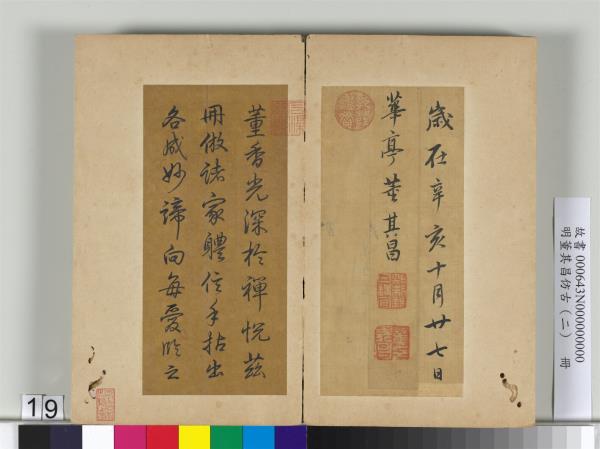 歲在辛亥十月廿七日
華亭董其昌
董香光深於禪悅茲
冊倣諸家體信手拈出
各成妙諦向每愛臨之
故書 000643N000000000
明董其昌仿古（二） 冊
19